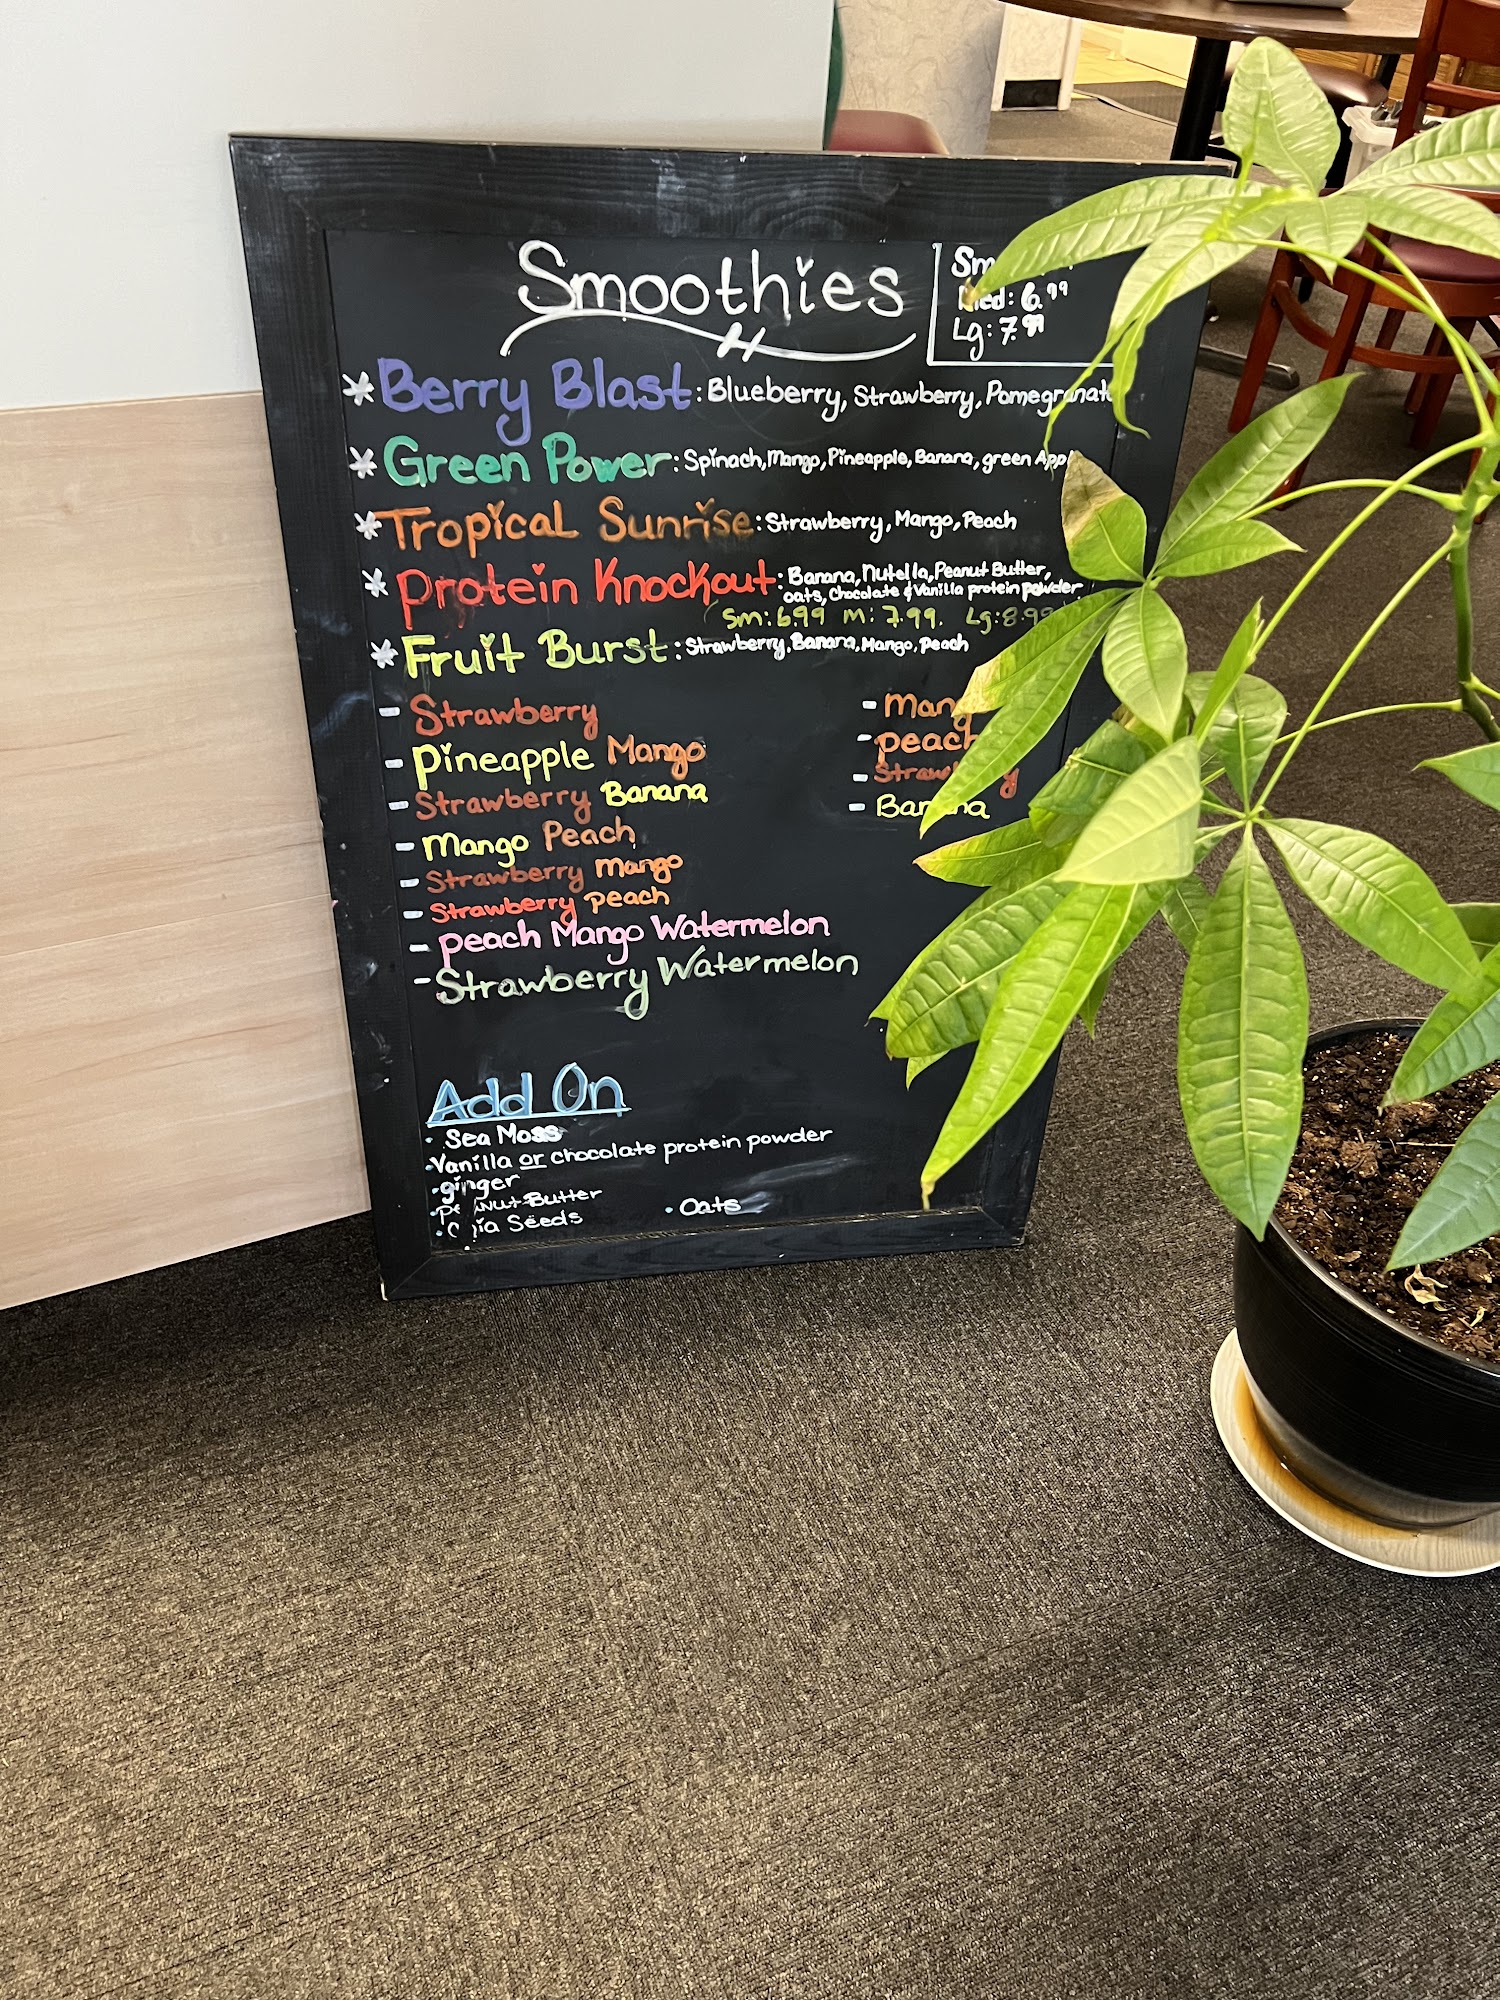 Smoothies
Med: 6.99
Lg: 7.99
* Berry Blast: Blueberry, Strawberry, Pomegranate
* Green Power: Spinach, Mango, Pineapple, Banana, green
* Tropical Sunrise: Strawberry, Mango, Peach
* Protein Knockout: Banana, Nutella, Peanut Butter,
oats, Chocolate & Vanilla protein powder
Sm: 6.99 M: 7.99. Lg: 8.99
* Fruit Burst: Strawberry, Banana, Mango, Peach
- Strawberry
- Pineapple Mango
- Strawberry Banana
- Mango Peach
- Strawberry Mango
- Strawberry peach
- peach Mango Watermelon
- Strawberry Watermelon
- Mango
- peach
- Strawberry
- Banana
Add On
• Sea Moss
• Vanilla or chocolate protein powder
• ginger
• Peanut Butter
• Chia Seeds
• Oats